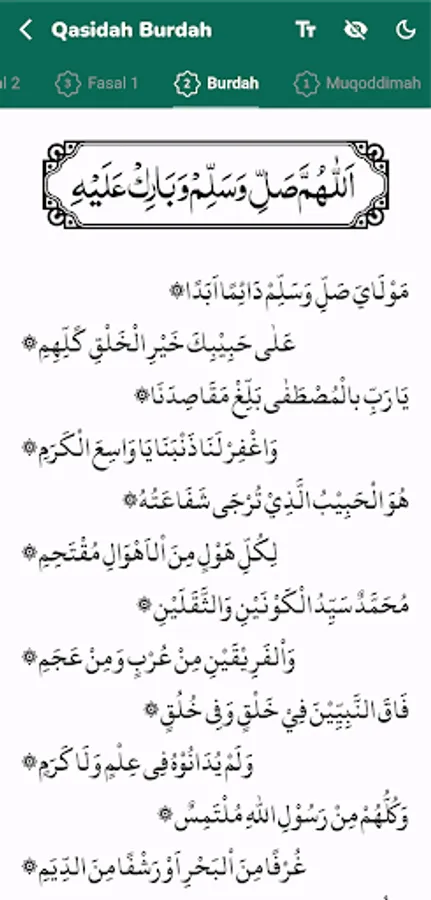 Qasidah Burdah
l 2
3 Fasal 1
2 Burdah
1 Muqoddimah
اَللّٰهُمَّ صَلِّ وَسَلِّمْ وَبَارِكْ عَلَيْهِ
مَوْلَايَ صَلِّ وَسَلِّمْ دَائِمًا اَبَدًا۞
عَلٰى حَبِيْبِكَ خَيْرِ الْخَلْقِ كُلِّهِمِ۞
يَا رَبِّ بِالْمُصْطَفٰى بَلِّغْ مَقَاصِدَنَا۞
وَاغْفِرْ لَنَا ذَنْبَنَا يَا وَاسِعَ الْكَرَمِ۞
هُوَ الْحَبِيْبُ الَّذِيْ تُرْجَى شَفَاعَتُهُ۞
لِكُلِّ هَوْلٍ مِنَ اْلاَهْوَالِ مُقْتَحِمِ۞
مُحَمَّدٌ سَيِّدُ الْكَوْنَيْنِ وَالثَّقَلَيْنِ۞
وَاْلفَرِيْقَيْنِ مِنْ عُرْبٍ وَمِنْ عَجَمِ۞
فَاقَ النَّبِيِّيْنَ فِيْ خَلْقٍ وَفِى خُلُقٍ۞
وَلَمْ يُدَانُوْهُ فِى عِلْمٍ وَلَا كَرَمِ۞
وَكُلُّهُمْ مِنْ رَسُوْلِ اللهِ مُلْتَمِسٌ۞
غُرْفًا مِنَ اْلبَحْرِ اَوْ رَشْفًا مِنَ الدِّيَمِ۞